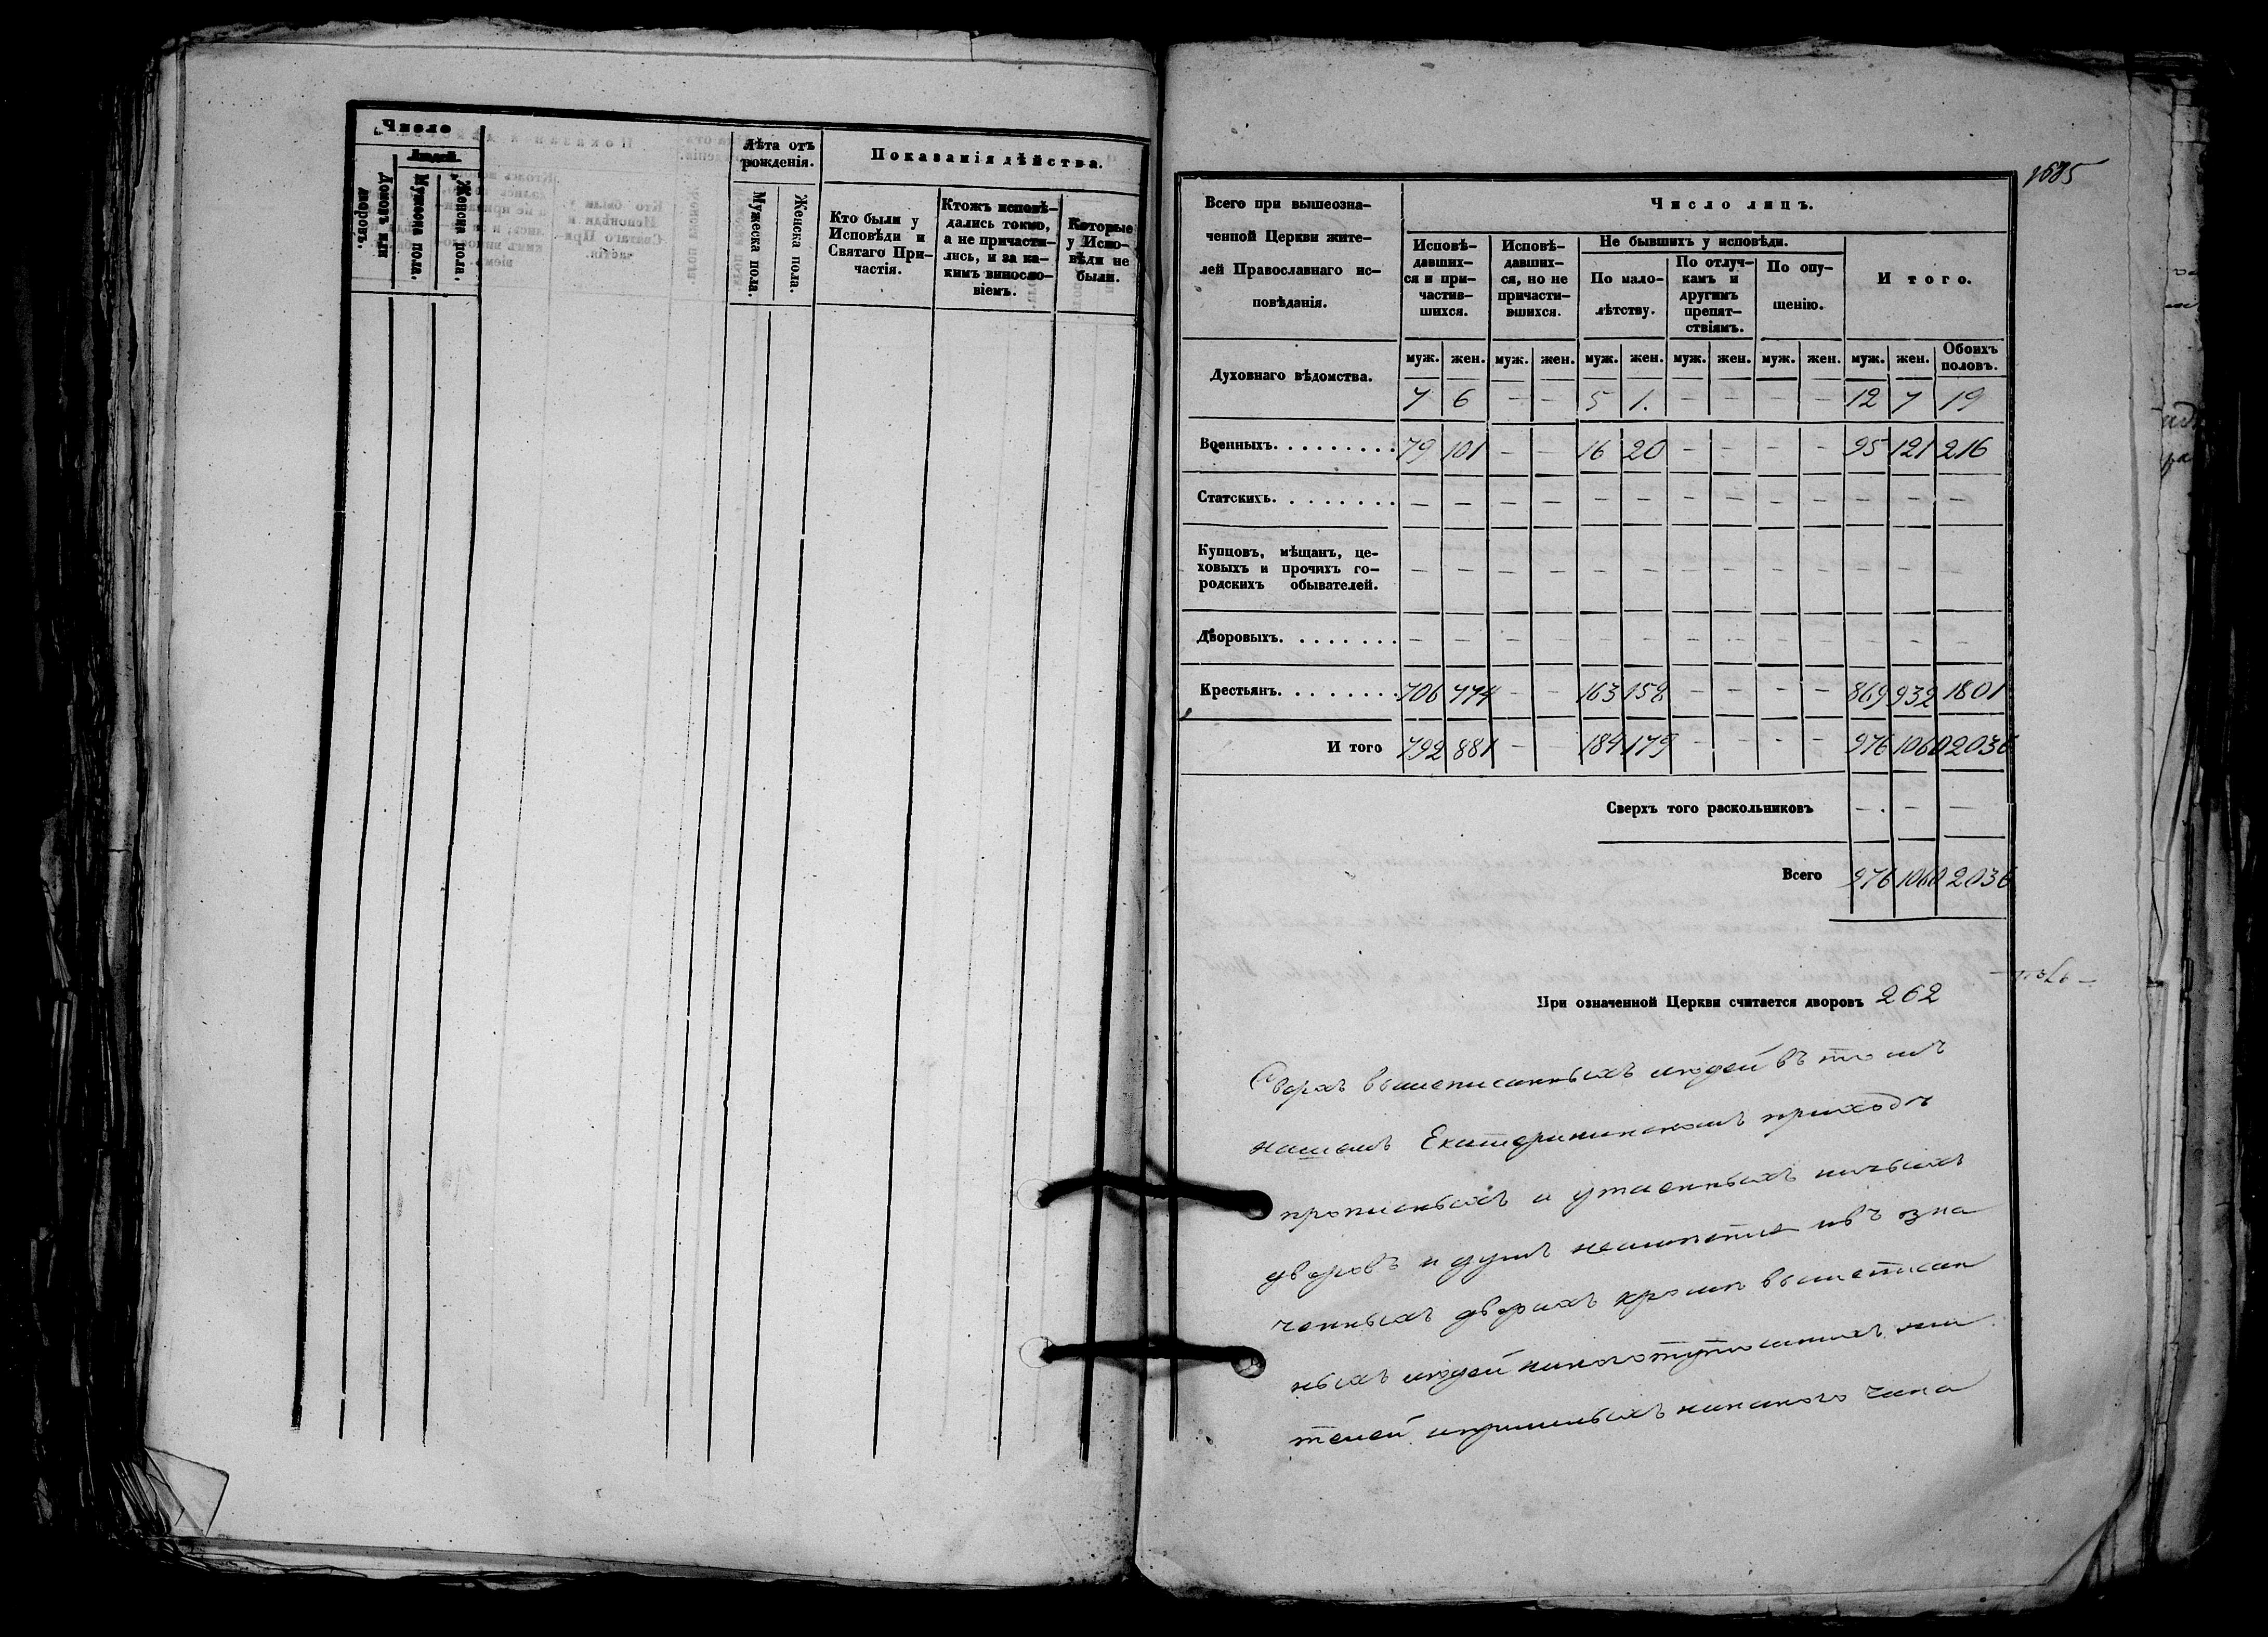 Число
Людей.
Домовъ или дворовъ.
Мужеска пола.
Женска пола.
Лѣта отъ рожденія.
Мужеска пола.
Женска пола.
Показанія дѣйства.
Кто были у
Исповѣди и
Святаго При-
частія.
Ктожъ исповѣ-
дались токмо,
а не причасти-
лись, и за ка-
кимъ виносло-
віемъ.
Которые
у Испо-
вѣди не
были.
1685
Всего при вышеозна-
ченной Церкви жите-
лей Православнаго ис-
повѣданія.
Число лицъ.
Исповѣ-
давших-
ся и при-
частив-
шихся.
Исповѣ-
давших-
ся, но не
причасти-
вшихся.
Не бывшихъ у исповѣди.
По мало-
лѣтству.
По отлуч-
камъ и
другимъ
препят-
ствіямъ.
По опу-
щенію.
И того.
муж. жен. муж. жен. муж. жен. муж. жен. муж. жен. муж. жен. Обоихъ половъ.
Духовнаго вѣдомства. 7 6 – – 5 1. – – – – 12 7 19
Военныхъ. . . . . . . . . 79 101 – – 16 20 – – – – 95 121 216
Статскихъ. . . . . . . . – – – – – – – – – – – – –
Купцовъ, мѣщанъ, це-
ховыхъ и прочихъ го-
родскихъ обывателей. – – – – – – – – – – – – –
Дворовыхъ. . . . . . . . – – – – – – – – – – – – –
Крестьянъ. . . . . . . . 706 774 – – 163 158 – – – – 869 932 1801
И того 792 881 – – 184 179 – – – – 976 1060 2036
Сверхъ того раскольниковъ – – –
Всего 976 1060 2036
При означенной Церкви считается дворовъ 262
Сверхъ вышеписанныхъ людей въ томъ
нашемъ Екатерининскомъ приходѣ
прописныхъ и утаенныхъ ничьихъ
дворовъ и душъ неимѣется ивъ озна
ченныхъ дворахъ кромѣ вышеписан
ныхъ людей никого
телей ипришлыхъ никакого чина